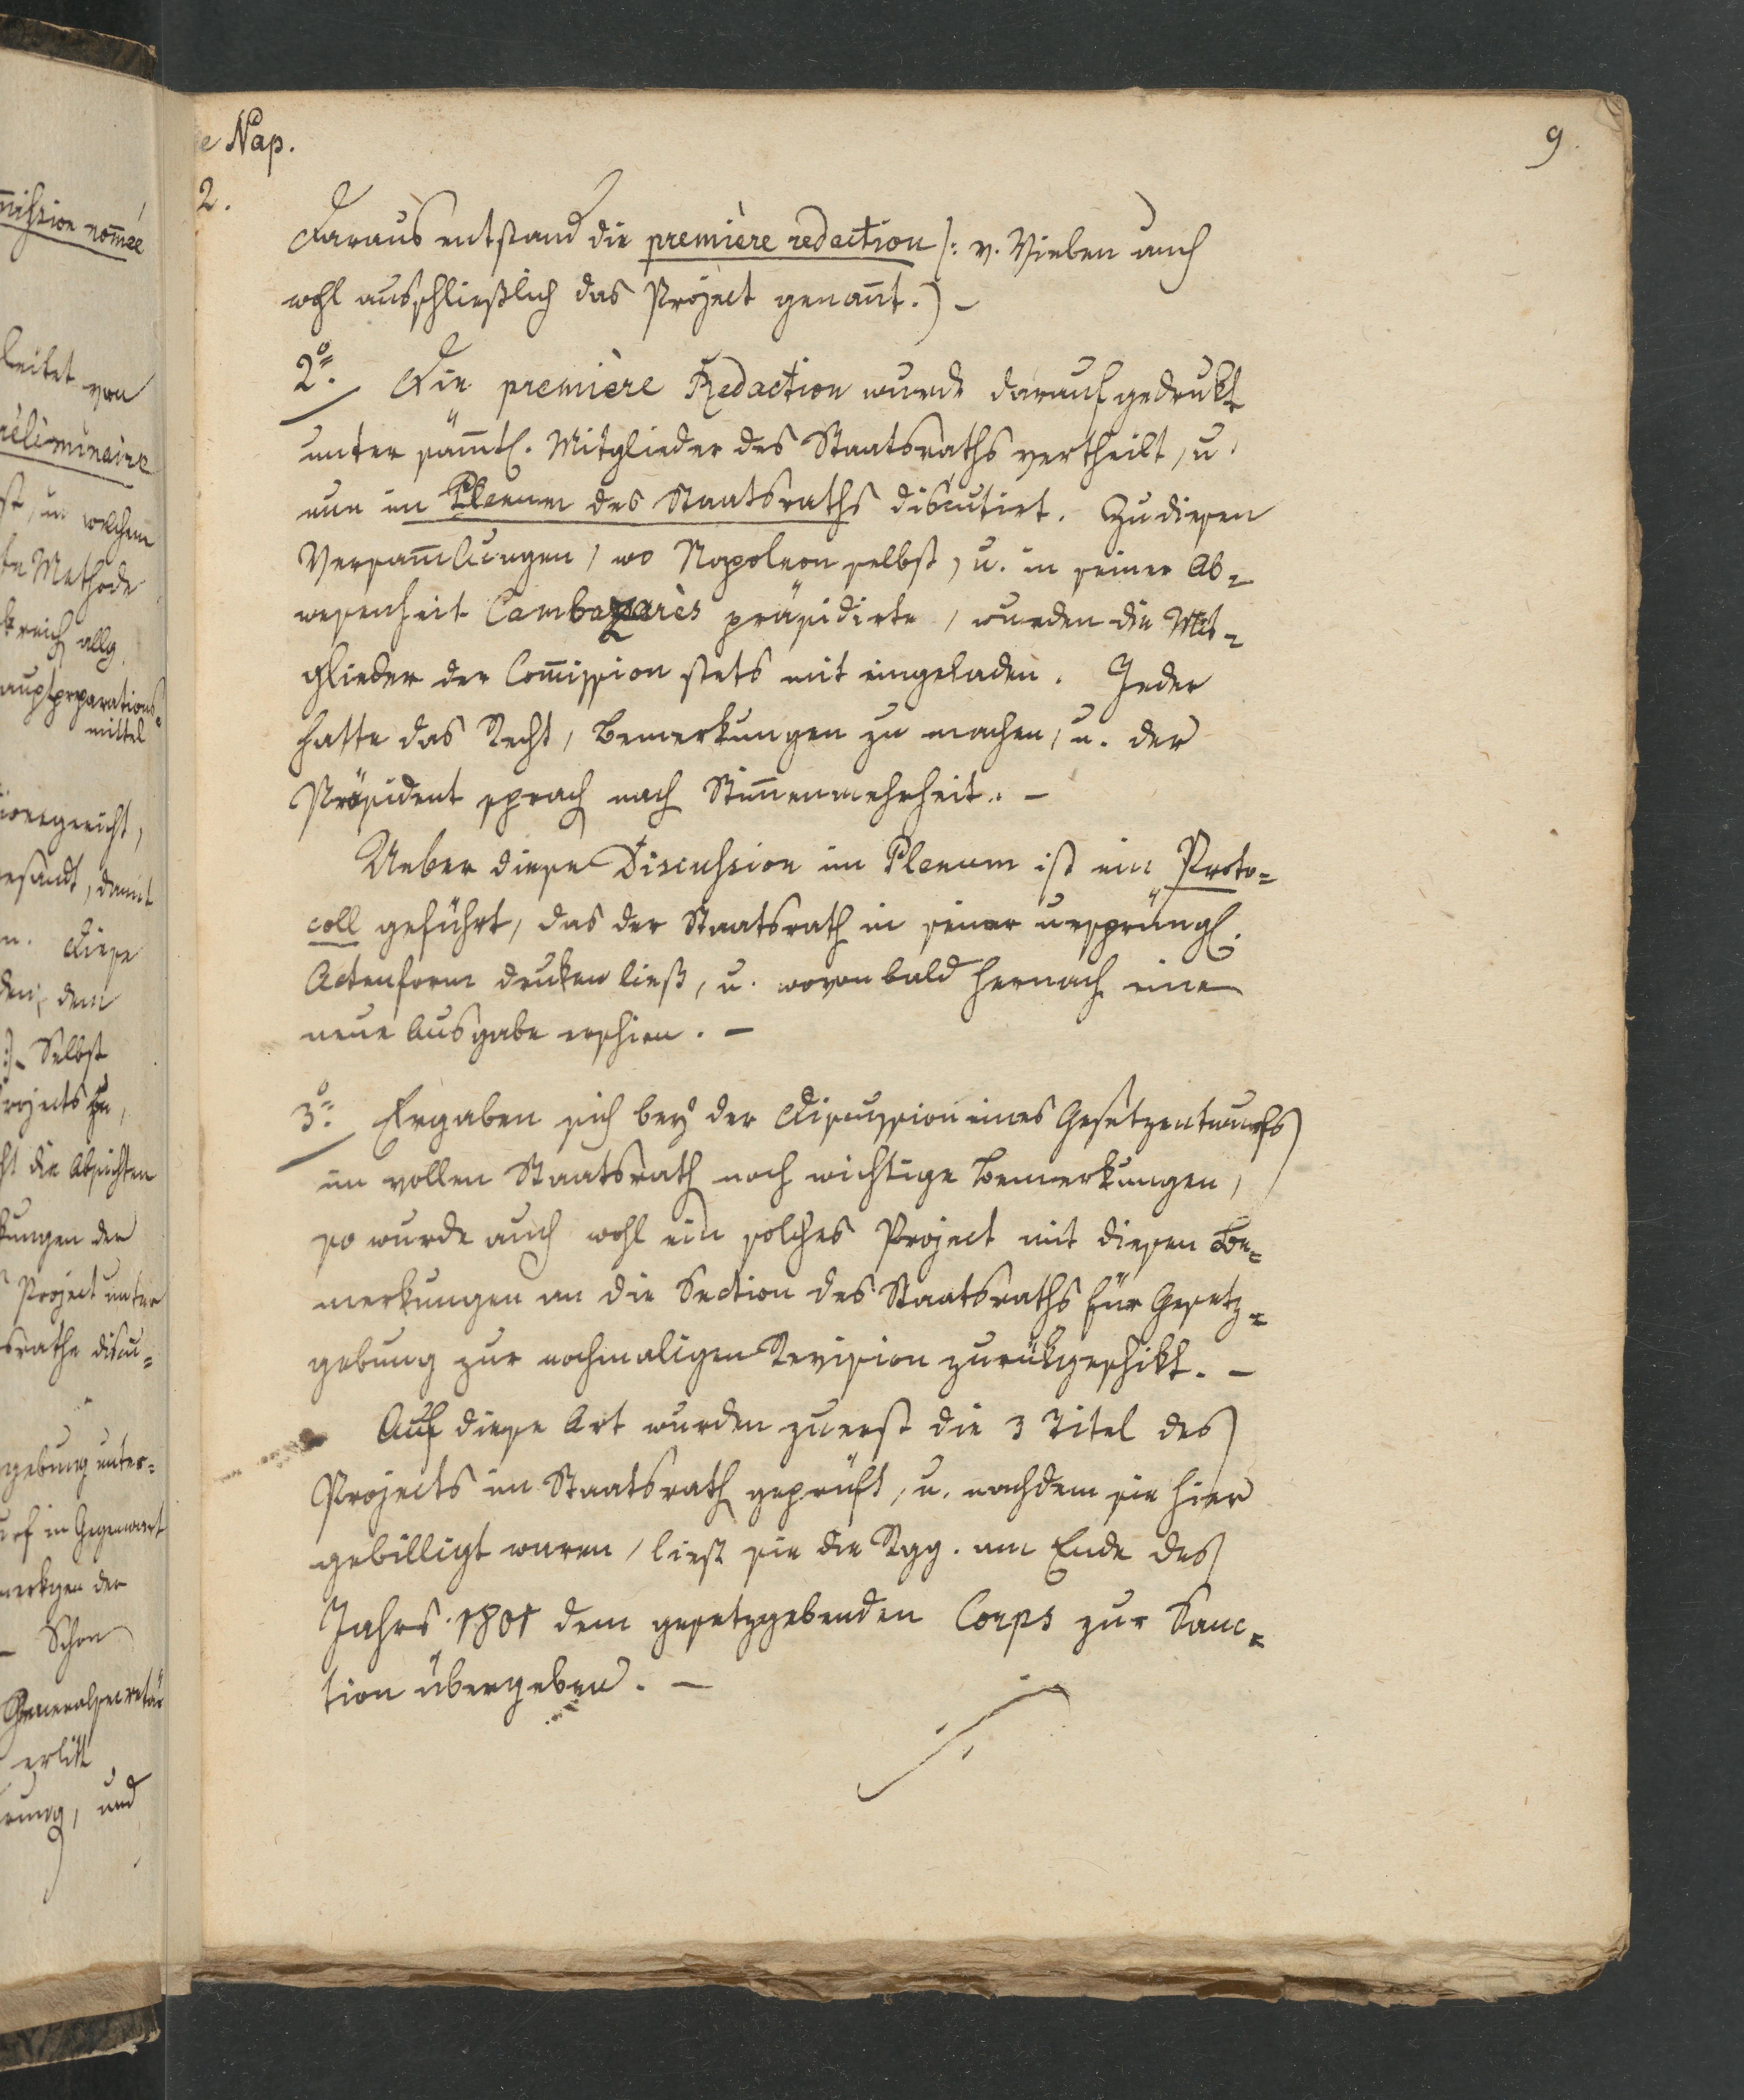 e Nap.
9.
2.
Daraus entstand die première redaction /: v. Vielen auch
wohl ausschließlich das Project genañt.) –
2º. Die première Redaction wurde darauf gedrukt
unter sämtl. Mitglieder des Staatsraths vertheilt, u.
nun im Plenum des Staatsraths discutirt. Zu diesen
Versam̄lungen, wo Napoleon selbst, u. in seiner Ab=
wesenheit Cambazarès präsidirte, wurden die Mit=
glieder der Com̄ission stets mit eingeladen. Jeder
hatte das Recht, Bemerkungen zu machen, u. der
Präsident sprach nach Stim̄enmehrheit. –
Ueber diese Discussion im Plenum ist ein Proto=
coll geführt, das der Staatsrath in seiner ursprüngl.
Actenform druken ließ, u. wovon bald hernach eine
neue Ausgabe erschien. –
3º. Ergaben sich bey der Discussion eines Gesetzentwurfs
im vollen Staatsrath noch wichtige Bemerkungen,
so wurde auch wohl ein solches Project mit diesen Be=
merkungen an die Section des Staatsraths für Gesetz=
gebung zur nochmaligen Revision zurükgeschikt. –
Auf diese Art wurden zuerst die 3 Titel des
Projects im Staatsrath geprüft, u. nachdem sie hier
gebilligt waren, liess sie die Rgg. am Ende des
Jahrs 1801 dem gesetzgebenden Corps zur Sanc=
tion übergeben. –
mission nom̄ée
leitet von
réliminaire
st, in welchem
te Methode
kreich allg.
auptpräparations=
mittel
ionsgericht,
gesandt, damit
n. Diese
den, dem
:). Selbst
rojects zu,
ht die Absichten
kungen der
s Project unter
srathe discu=
gebung unter=
urf in Gegenwart
merkgen der
– Schon
Generalsecretär
erlitt
rung, und